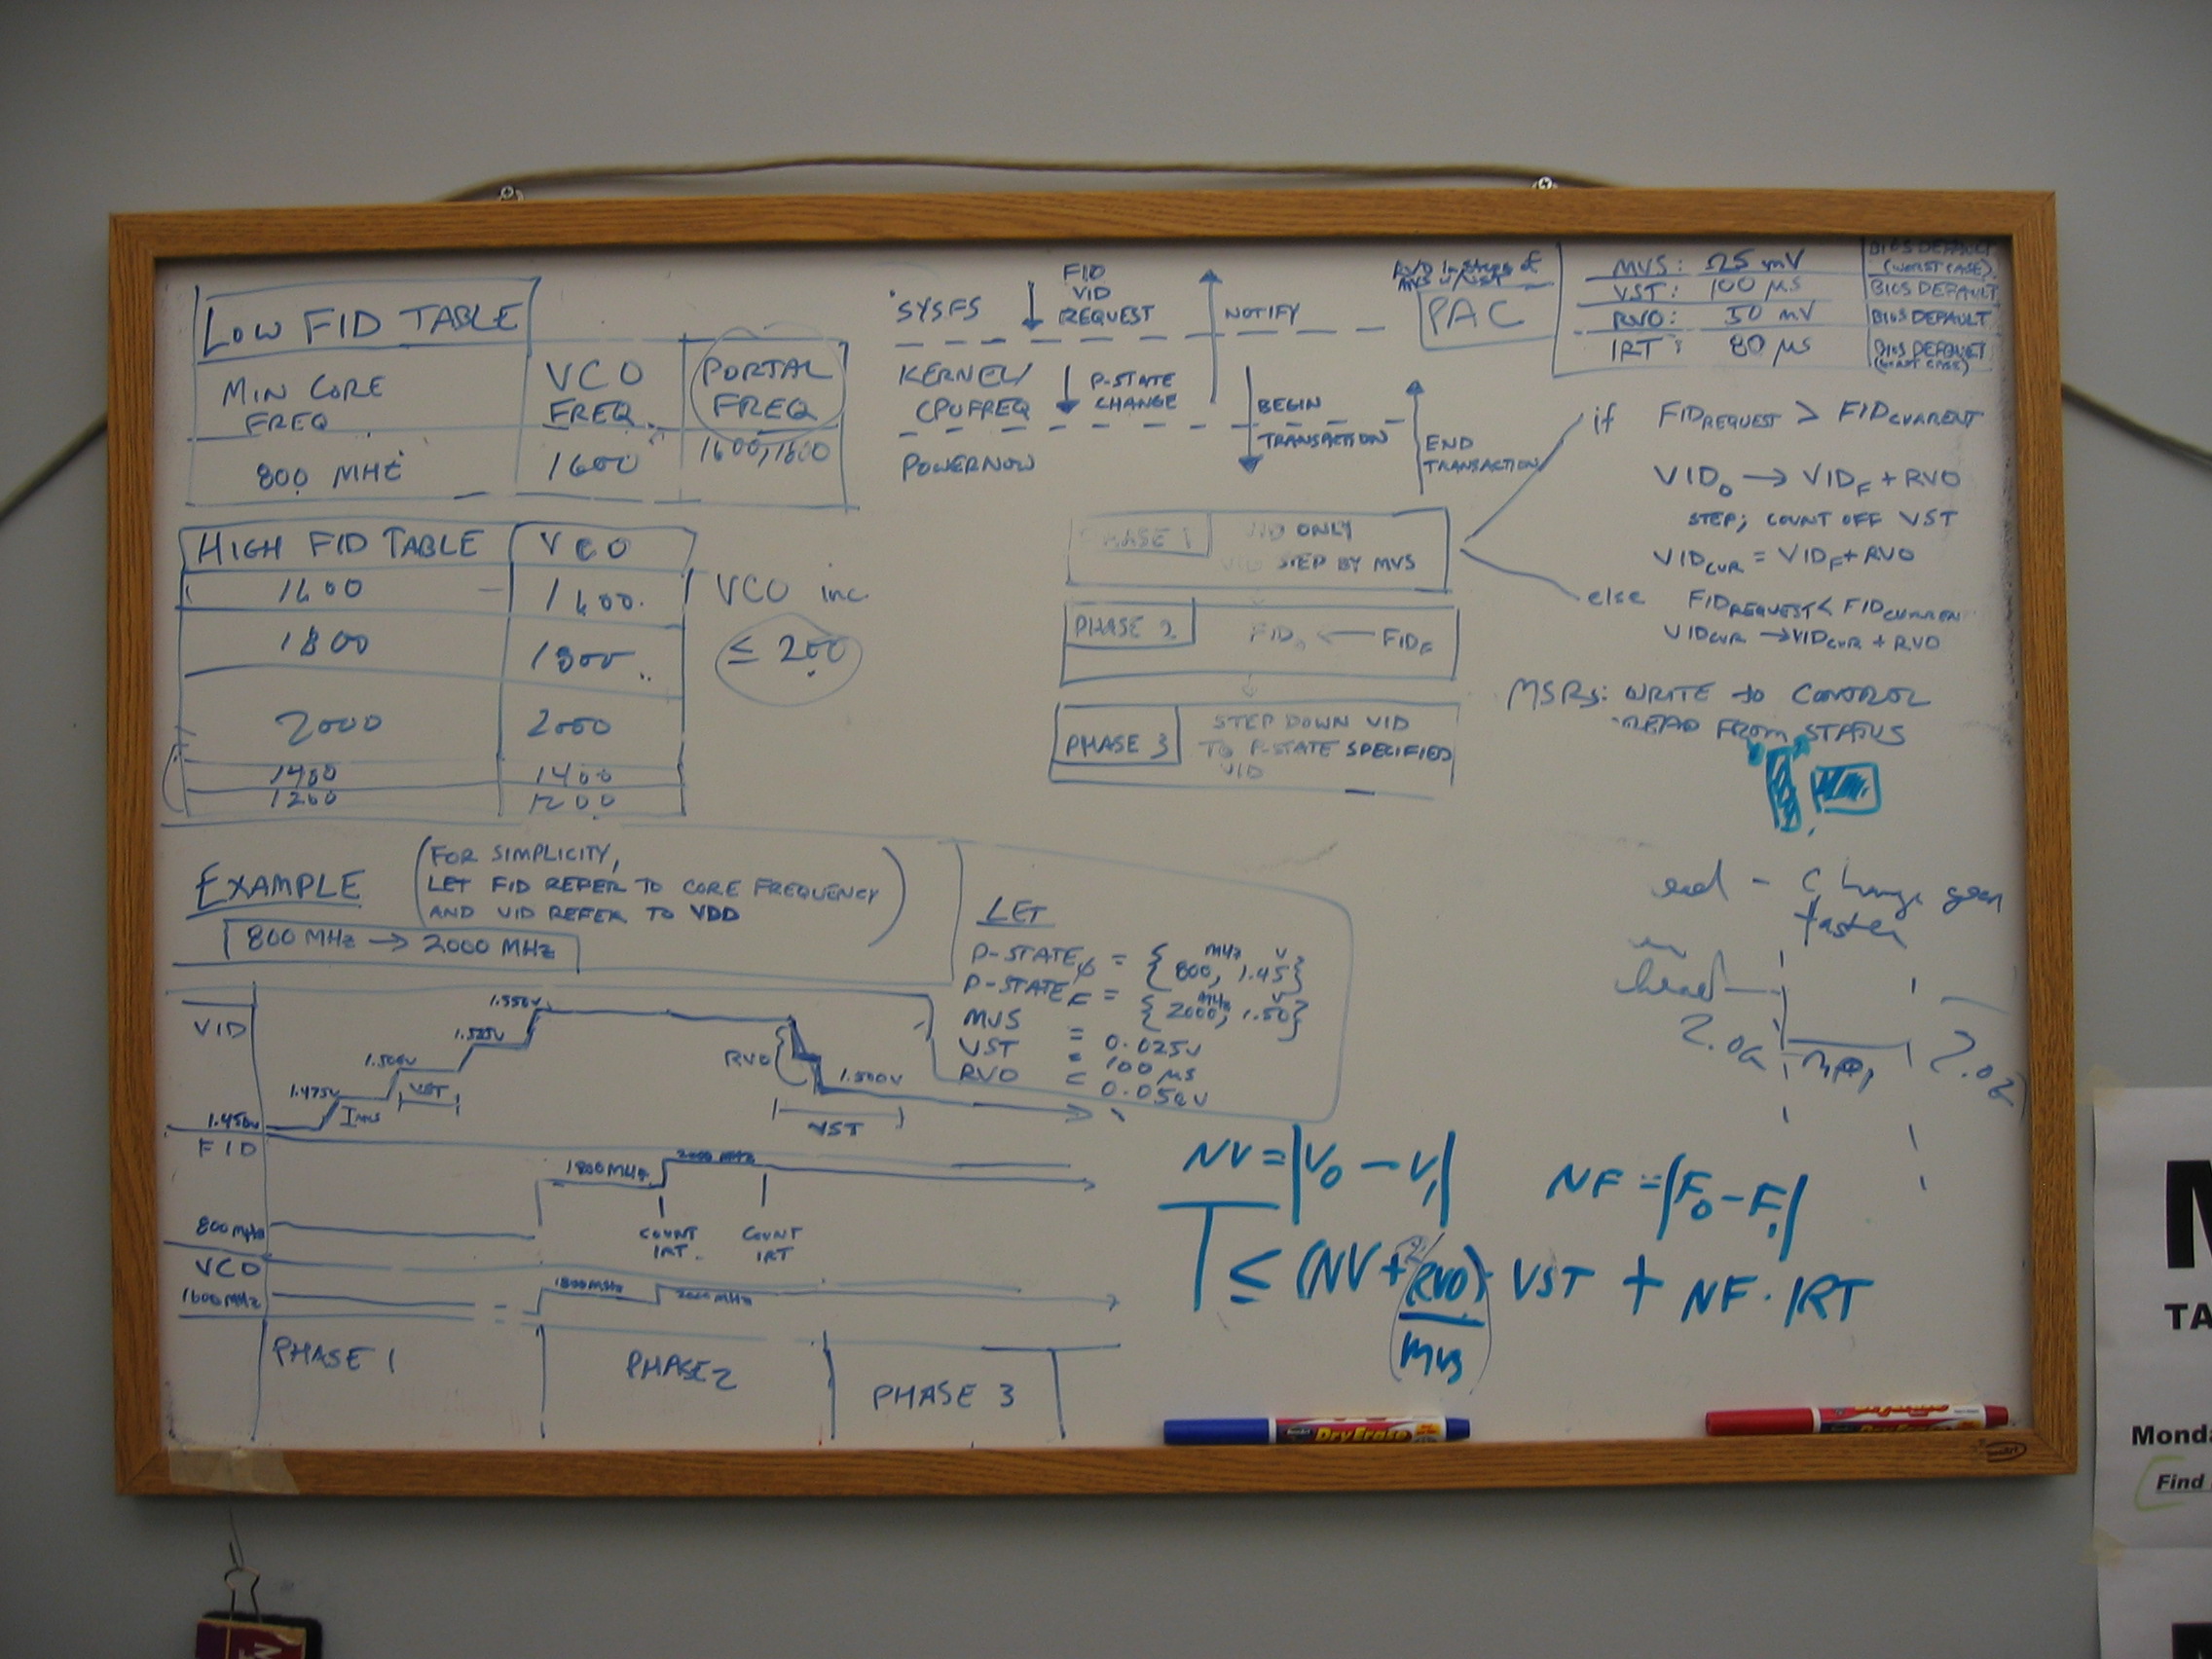 LOW FID TABLE
MIN CORE FREQ
VCO FREQ.
PORTAL FREQ
800 MHz
1600
1600, 1800
HIGH FID TABLE
VCO
1600
1600
1800
1800
2000
2000
1400
1400
1200
1200
VCO inc.
≤ 200
SYSFS
FID
VID
REQUEST
NOTIFY
KERNEL/
CPUFREQ
P-STATE
CHANGE
BEGIN
TRANSACTION
END
TRANSACTION
POWERNOW
PAC
MVS: 25 mV
BIOS DEFAULT
(WORST CASE)
VST: 100 µS
BIOS DEFAULT
RVO: 50 mV
BIOS DEFAULT
IRT: 80 µS
BIOS DEFAULT
(WORST CASE)
PHASE 1
VID ONLY
VID STEP BY MVS
PHASE 2
FID₀ ← FID_F
PHASE 3
STEP DOWN VID
TO P-STATE SPECIFIED
VID
if FID_REQUEST > FID_CURRENT
VID₀ → VID_F + RVO
STEP; COUNT OFF VST
VID_CUR = VID_F + RVO
else FID_REQUEST < FID_CURREN
VID_CUR → VID_CUR + RVO
MSRs: WRITE to CONTROL
READ FROM STATUS
Change gear
faster
2.0G
2.0G
EXAMPLE
(FOR SIMPLICITY,
LET FID REFER TO CORE FREQUENCY
AND VID REFER TO VDD)
800 MHz → 2000 MHz
LET
P-STATE∅ = {800 MHz, 1.45 V}
P-STATE_F = {2000 MHz, 1.50 V}
MVS = 0.025V
VST = 100 µS
RVO = 0.050V
VID
1.450V
1.475V
1.500V
1.525V
1.550V
MVS
VST
RVO
1.500V
VST
FID
800 MHz
1800 MHz
2000 MHz
COUNT
IRT
COUNT
IRT
VCO
1600 MHz
1800 MHz
2000 MHz
PHASE 1
PHASE 2
PHASE 3
NV = |V₀ − V₁|
NF = |F₀ − F₁|
T ≤ (NV + 2/RVO/MVS) · VST + NF · IRT
DryErase
DryErase
M
TA
Monda
Find